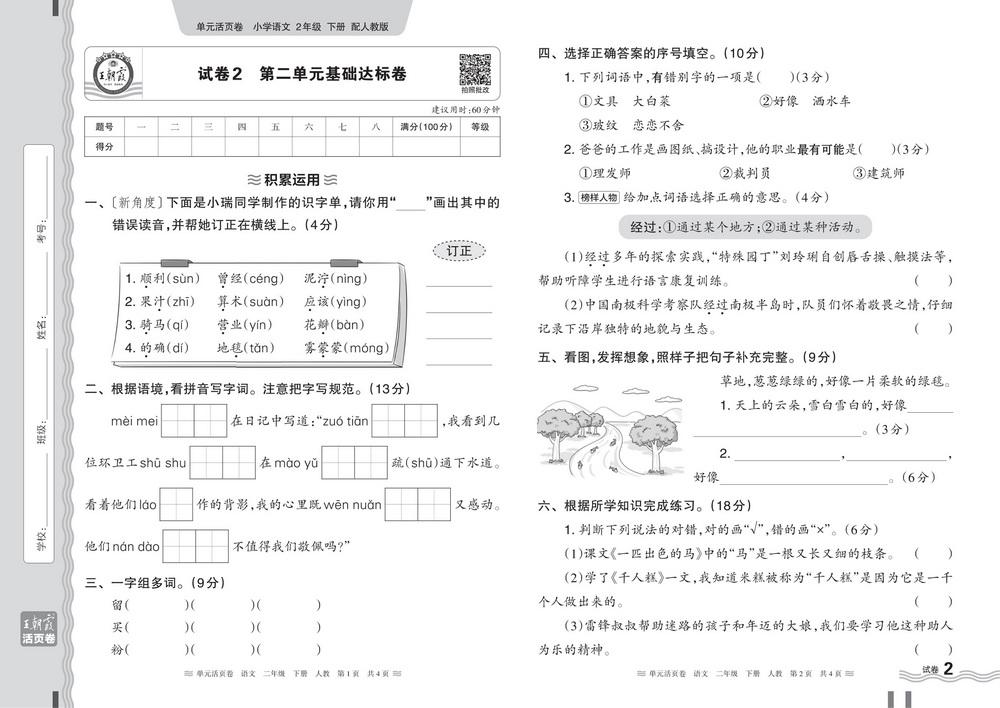 单元活页卷 小学语文 2年级 下册 配人教版
王朝霞
试卷2 第二单元基础达标卷
拍照批改
建议用时:60分钟
题号 一 二 三 四 五 六 七 八 满分(100分) 等级
得分
积累运用
一、〔新角度〕下面是小瑞同学制作的识字单,请你用“____”画出其中的
错误读音,并帮她订正在横线上。(4分)
订正
1. 顺利(sùn) 曾经(céng) 泥泞(nìng)
2. 果汁(zhī) 算术(suàn) 应该(yìng)
3. 骑马(qí) 营业(yín) 花瓣(bàn)
4. 的确(dí) 地毯(tǎn) 雾蒙蒙(móng)
二、根据语境,看拼音写字词。注意把字写规范。(13分)
mèi mei 在日记中写道:“zuó tiān ,我看到几
位环卫工shū shu 在mào yǔ 疏(shū)通下水道。
看着他们láo 作的背影,我的心里既wēn nuǎn 又感动。
他们nán dào 不值得我们敬佩吗?”
三、一字组多词。(9分)
留( )( )( )
买( )( )( )
粉( )( )( )
单元活页卷 语文 二年级 下册 人教 第1页 共4页
学校: 班级: 姓名: 考号:
王朝霞
活页卷
四、选择正确答案的序号填空。(10分)
1. 下列词语中,有错别字的一项是( )(3分)
①文具 大白菜 ②好像 洒水车
③玻纹 恋恋不舍
2. 爸爸的工作是画图纸、搞设计,他的职业最有可能是( )(3分)
①理发师 ②裁判员 ③建筑师
3. 榜样人物 给加点词语选择正确的意思。(4分)
经过:①通过某个地方;②通过某种活动。
(1)经过多年的探索实践,“特殊园丁”刘玲琍自创唇舌操、触摸法等,
帮助听障学生进行语言康复训练。 ( )
(2)中国南极科学考察队经过南极半岛时,队员们怀着敬畏之情,仔细
记录下沿岸独特的地貌与生态。 ( )
五、看图,发挥想象,照样子把句子补充完整。(9分)
草地,葱葱绿绿的,好像一片柔软的绿毯。
1. 天上的云朵,雪白雪白的,好像________
________________。(3分)
2. ____________,____________,
好像________________。(6分)
六、根据所学知识完成练习。(18分)
1. 判断下列说法的对错,对的画“√”,错的画“×”。(6分)
(1)课文《一匹出色的马》中的“马”是一根又长又细的枝条。 ( )
(2)学了《千人糕》一文,我知道米糕被称为“千人糕”是因为它是一千
个人做出来的。 ( )
(3)雷锋叔叔帮助迷路的孩子和年迈的大娘,我们要学习他这种助人
为乐的精神。 ( )
单元活页卷 语文 二年级 下册 人教 第2页 共4页
试卷 2